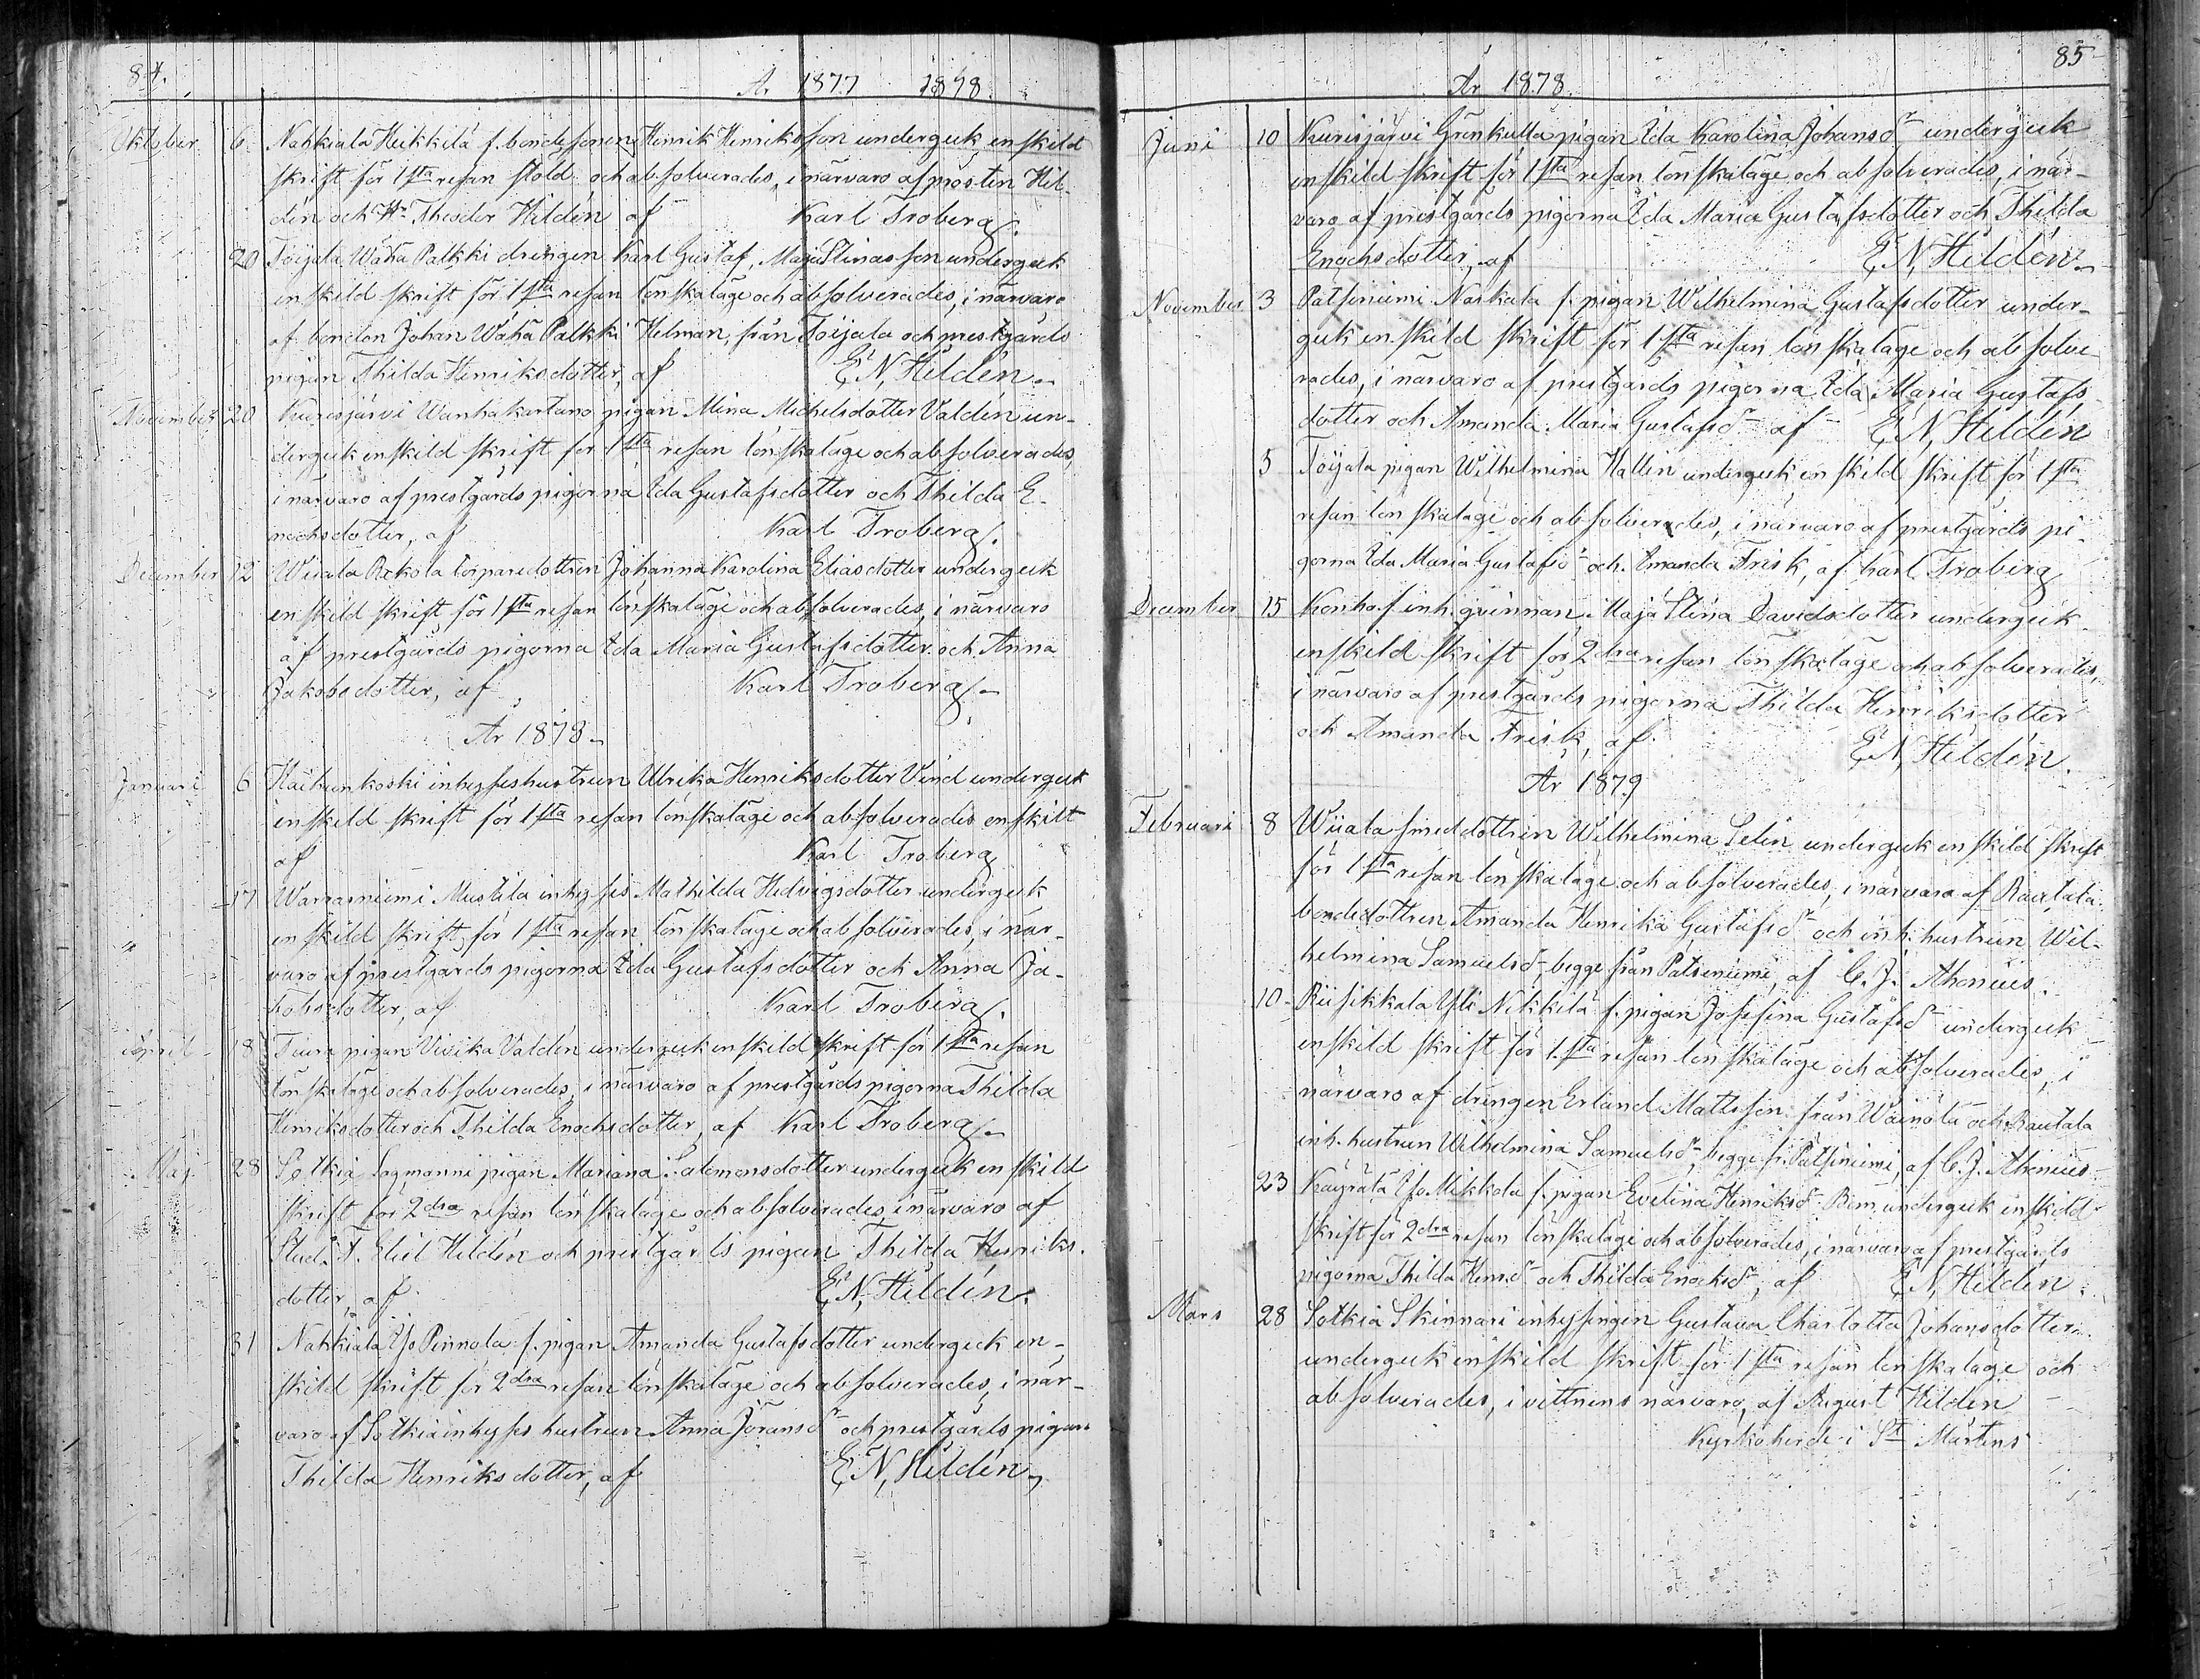 84.
A. 1877 1878.
Oktober 6 Nahkiala Heikkilä f. bondesonen Henrik Henriksson undergick enskild
skrift för 1sta resan stöld och absolverades, i närvaro af prosten Hil-
dén och Hr Theodor Hildén af Karl Troberg.
20 Toijala Wähä Palkki drengen Karl Gustaf, Maja Stinas son undergick
enskild skrift för 1sta resan lönskaläge och absolverades, i närvaro
af bonden Johan Wähä Palkki Helman, från Toijala och prestgårds
pigan Thilda Henriksdotter, af E. N. Hildén.
November 20 Kurisjärvi Wanhakartano pigan Mina Michelsdotter Valdén un-
dergick enskild skrift för 1sta resan lönskaläge och absolverades,
i närvaro af prestgårds pigorna Ida Gustafsdotter och Thilda E-
nochsdotter, af Karl Troberg.
December 12 Wiiala torparedottren Johanna Karolina Eliasdotter undergick
enskild skrift för 1sta resan lönskaläge och absolverades, i närvaro
af prestgårds pigorna Ida Maria Gustafsdotter och Anna
Jakobsdotter, af Karl Troberg.
År 1878.
Januari 6 inhyseshustrun Ulrika Henriksdotter Vind undergick
enskild skrift för 1sta resan lönskaläge och absolverades enskilt
af Karl Troberg
17 Warrasniemi Mustila inhyses Mathilda Hedvigsdotter undergick
enskild skrift för 1sta resan lönskaläge och absolverades, i när-
varo af prestgårds pigorna Ida Gustafsdotter och Anna Ja-
kobsdotter, af Karl Troberg.
April 18 pigan Vivika Valdén undergick enskild skrift för 1sta resan
lönskaläge och absolverades, i närvaro af prestgårds pigorna Thilda
Henriksdotter och Thilda Enochsdotter, af Karl Troberg.
Maj 28 Sotkia Lagmanni pigan Mariana Salomonsdotter undergick enskild
skrift för 2dra resan lönskaläge och absolverades, i närvaro af
Stud. T. Eliel Hildén och prestgårds pigan Thilda Henriks-
dotter, af E. N. Hildén.
31 Nahkiala Yso Pinnola f. pigan Amanda Gustafsdotter undergick en-
skild skrift för 2dra resan lönskaläge och absolverades, i när-
varo af Sotkia inhyses hustrun Anna Göransdr och prestgårds pigan
Thilda Henriksdotter, af E. N. Hildén.
85
År 1878.
Juni 10 Kurisjärvi Grönkulla pigan Ida Karolina Johansdr undergick
enskild skrift för 1sta resan lönskaläge och absolverades, i när-
varo af prestgårds pigorna Ida Maria Gustafsdotter och Thilda
Enochsdotter, af E. N. Hildén.
November 3 Patsiniemi Naskala f. pigan Wilhelmina Gustafsdotter under-
gick enskild skrift för 1sta resan lönskaläge och absolve-
rades, i närvaro af prestgårds pigorna Ida Maria Gustafs-
dotter och Amanda Maria Gustafsdr af E. N. Hildén
5 Toijala pigan Wilhelmina Hallin undergick enskild skrift för 1sta
resan lönskaläge och absolverades, i närvaro af prestgårds pi-
gorna Ida Maria Gustafsdr och Amanda Frisk, af Karl Troberg
December 15 Konho f. inh. qvinnan Maja Stina Davidsdotter undergick
enskild skrift för 2dra resan lönskaläge och absolverades,
i närvaro af prestgårds pigorna Thilda Henriksdotter
och Amanda Frisk, af E. N. Hildén.
År 1879
Februari 8 Wiiala smeddottren Wilhelmina Selin undergick enskild skrift
för 1sta resan lönskaläge och absolverades, i närvaro af Rautala
bondedottren Amanda Henrika Gustafsdr och inh. hustrun Wil-
helmina Samuelsdr begge från Patsiniemi, af C. J. Ahonius.
10 Riisikkala Yli Nikkilä f. pigan Josefina Gustafsdr undergick
enskild skrift för 1sta resan lönskaläge och absolverades, i
närvaro af drengen Erland Mattsson från Wäinölä och Rautala
inh. hustrun Wilhelmina Samuelsdr, begge fr. Patsiniemi, af C. J. Ahonius
23 Käyrälä Yso Mikkola f. pigan Evelina Henriksdr undergick enskild
skrift för 2dra resan lönskaläge och absolverades, i närvaro af prestgårds
pigorna Thilda Henr.dr och Thilda Enochsdr, af E. N. Hildén.
Mars 28 Sotkia Skinnari inhysingen Gustava Charlotta Johansdotter
undergick enskild skrift för 1sta resan lönskaläge och
absolverades, i vittnens närvaro, af August Hildén
Kyrkoherde i St Mårtens